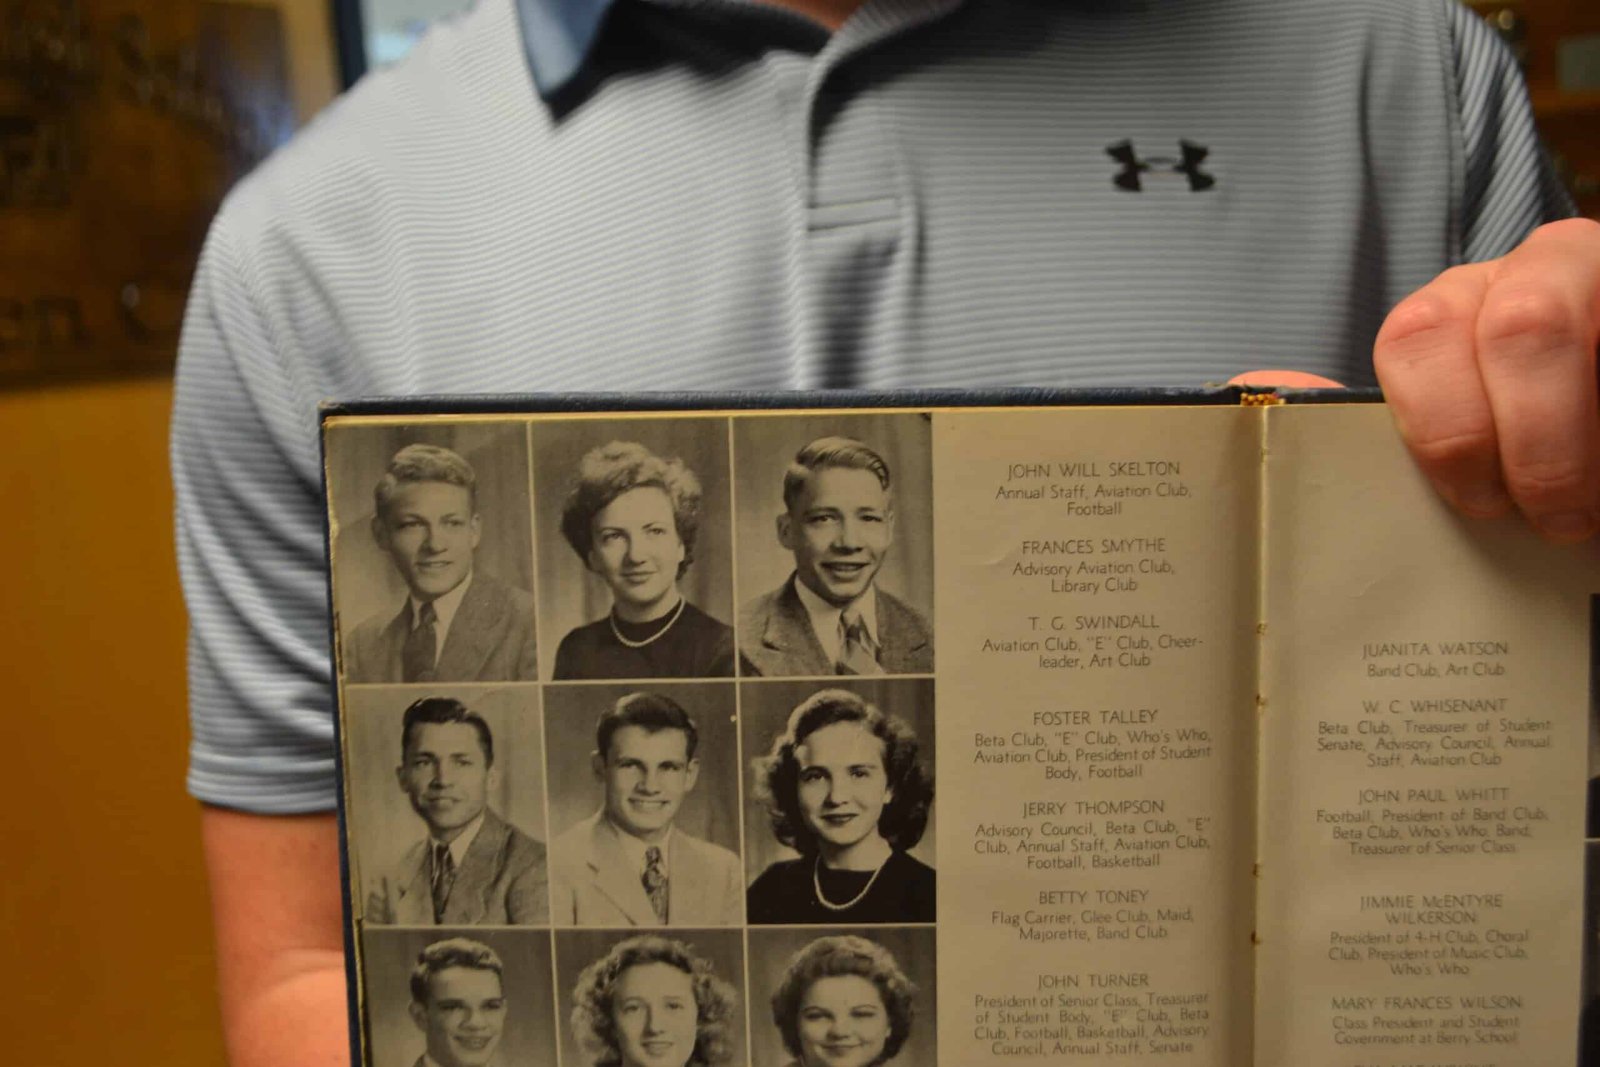 JOHN WILL SKELTON
Annual Staff, Aviation Club,
Football
FRANCES SMYTHE
Advisory Aviation Club,
Library Club
T. G. SWINDALL
Aviation Club, "E" Club, Cheer-
leader, Art Club
FOSTER TALLEY
Beta Club, "E" Club, Who's Who,
Aviation Club, President of Student
Body, Football
JERRY THOMPSON
Advisory Council, Beta Club, "E"
Club, Annual Staff, Aviation Club,
Football, Basketball
BETTY TONEY
Flag Carrier, Glee Club, Maid,
Majorette, Band Club
JOHN TURNER
President of Senior Class, Treasurer
of Student Body, "E" Club, Beta
Club, Football, Basketball, Advisory
Council, Annual Staff, Senate
JUANITA WATSON
Band Club, Art Club
W. C. WHISENANT
Beta Club, Treasurer of Student
Senate, Advisory Council, Annual
Staff, Aviation Club
JOHN PAUL WHITT
Football, President of Band Club,
Beta Club, Who's Who, Band,
Treasurer of Senior Class
JIMMIE McENTYRE
WILKERSON
President of 4-H Club, Choral
Club, President of Music Club,
Who's Who
MARY FRANCES WILSON
Class President and Student
Government at Berry School